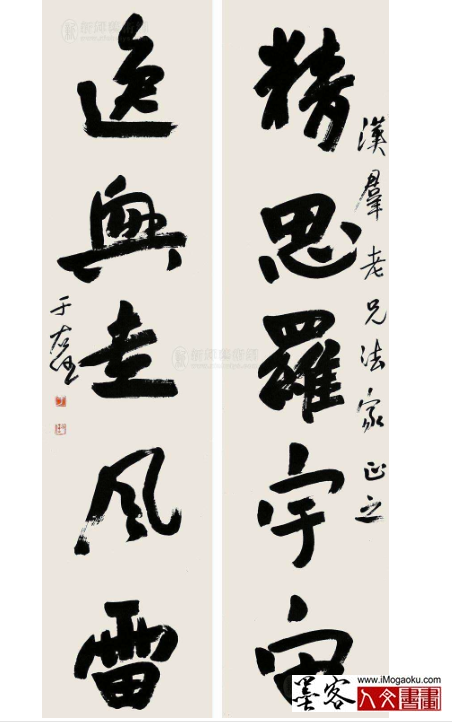 漢羣老兄法家正之
精思羅宇宙
逸興走風雷
于右任
www.iMogaoku.com
墨客
人文書畫